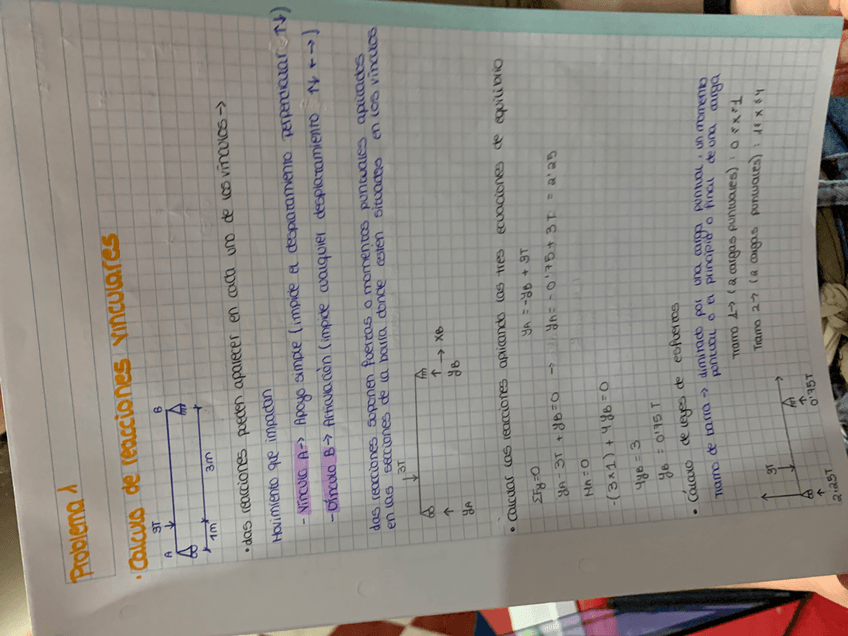 Problema 1
· Cálculo de reacciones vinculares
A 3T B
1m 3m
· Las reacciones pueden aparecer en cada uno de los vínculos →
Movimiento que impidan
- Vínculo A → Apoyo simple (impide el desplazamiento perpendicular ↑↓)
- Vínculo B → Articulación (impide cualquier desplazamiento ↑↓ ← →)
Las reacciones suponen fuerzas o momentos puntuales aplicados
en las secciones de la barra donde estén situados en los vínculos
3T
↑ ↑ → XB
YA YB
· Calcular las reacciones aplicando las tres ecuaciones de equilibrio
ΣFy=0 YA = -YB + 3T
YA - 3T + YB = 0 → YA = -0'75 + 3T = 2'25
MA = 0
-(3x1) + 4YB = 0
4YB = 3
YB = 0'75 T
· Cálculo de leyes de esfuerzos
Tramo de barra → limitado por una carga puntual, un momento
puntual o el principio o final de una carga
Tramo 1 → (2 cargas puntuales) : 0 ≤ x ≤ 1
Tramo 2 → (2 cargas puntuales) : 1 ≤ x ≤ 4
3T
2'25T 0'75T